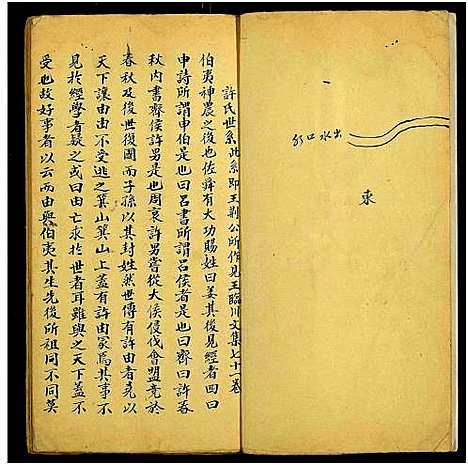 出水口形
東
許氏世系此系即王荆公所作見王臨川文集七十一卷
伯夷神農之後也佐舜有大功賜姓曰姜其後見經者四曰
申詩所謂申伯是也曰呂書所謂呂侯者是也曰齊曰許春
秋內書齊侯許男是也周衰許男嘗從大侯侵伐會盟竞於
春秋及後世後國而子孫以其封姓然世傳有許由者堯以
天下讓由由不受逃之箕山箕山上蓋有許由冢焉其事不
見於經學者疑之或曰由亡求於世者耳雖與之天下蓋不
受也故好事者以云而由與伯夷其生先後所祖同不同莫